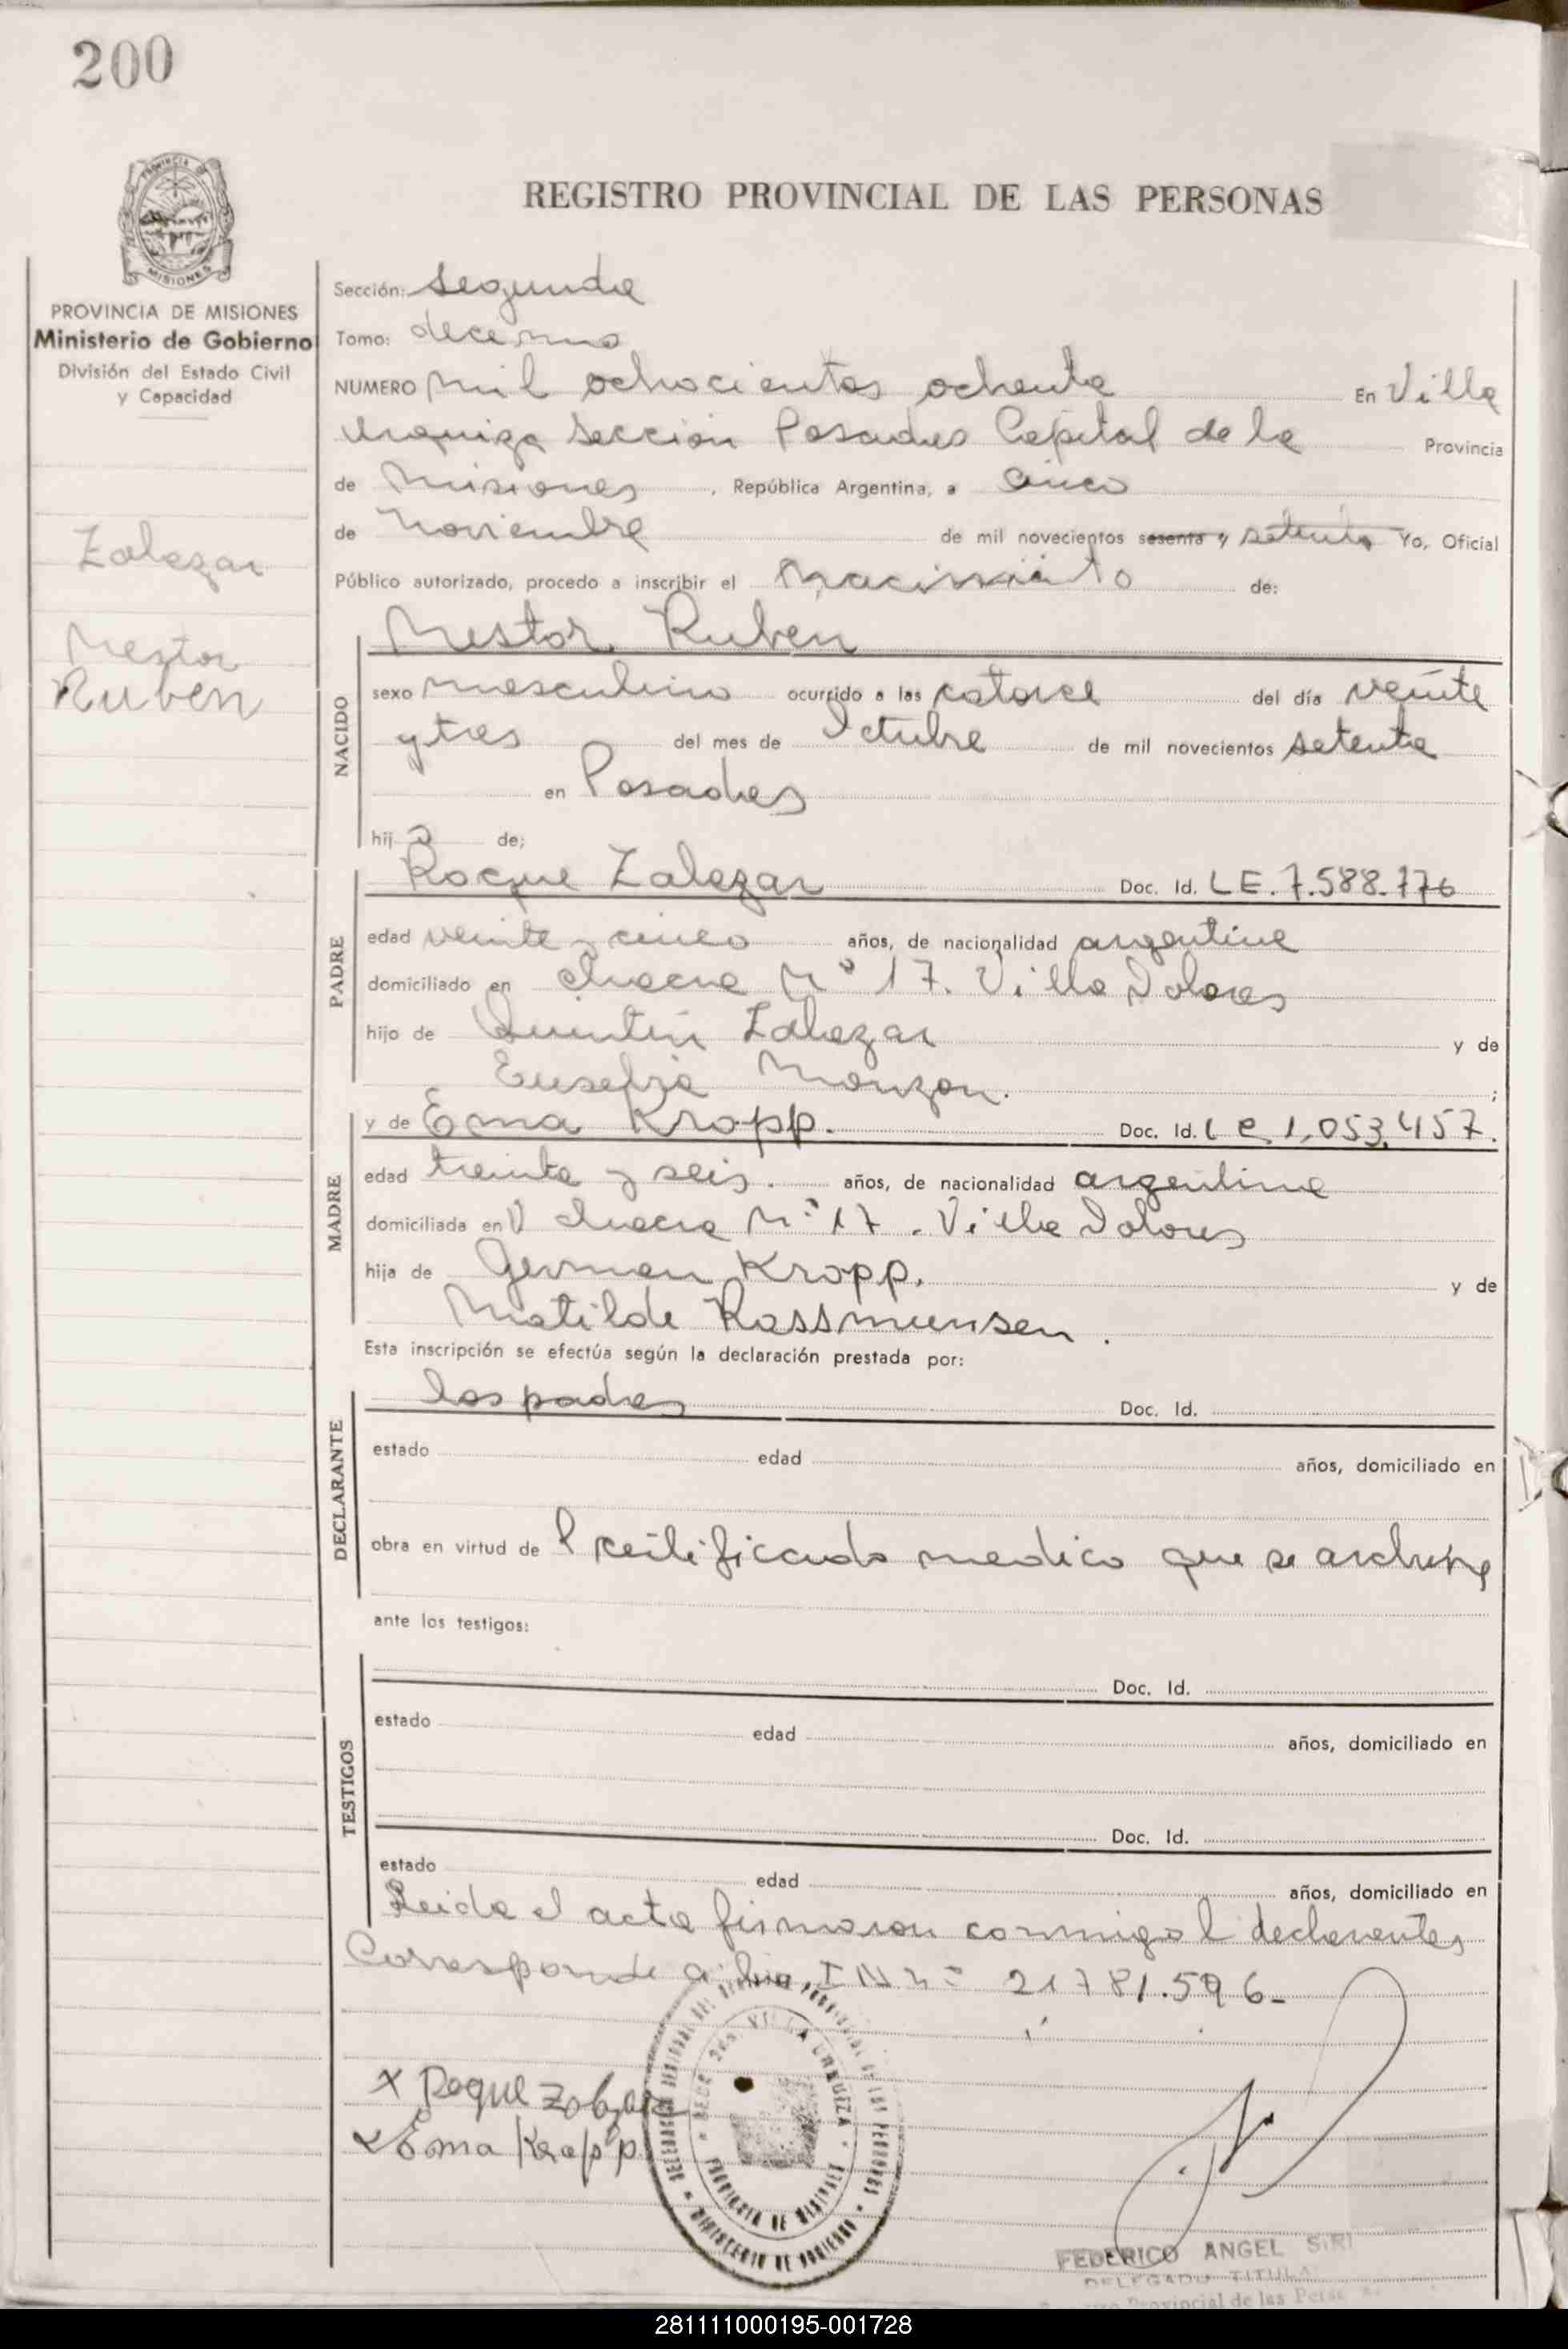 200
PROVINCIA DE
MISIONES
REGISTRO PROVINCIAL DE LAS PERSONAS
PROVINCIA DE MISIONES
Ministerio de Gobierno
División del Estado Civil
y Capacidad
Zalazar
Nestor
Ruben
Sección: segunda
Tomo: decimo
NUMERO mil ochocientos ochenta En Villa
Urquiza Seccion Posadas Capital de la Provincia
de Misiones, República Argentina, a cinco
de Noviembre de mil novecientos sesenta y setenta Yo, Oficial
Público autorizado, procedo a inscribir el nacimiento de:
NACIDO
Nestor Ruben
sexo masculino ocurrido a las catorce del día veinte
y tres del mes de Octubre de mil novecientos setenta
en Posadas
hijo de:
PADRE
Roque Zalazar Doc. Id. LE. 7.588.776
edad veinte y cinco años, de nacionalidad argentina
domiciliado en chacra Nº 17. Villa Dolores
hijo de Quintin Zalazar y de
Eusebia Monzon. ;
MADRE
y de Ema Kropp. Doc. Id. LC 1,053,457.
edad treinta y seis. años, de nacionalidad argentina
domiciliada en chacra Nº 17. Villa Dolores
hija de German Kropp. y de
Matilde Rassmunsen.
Esta inscripción se efectúa según la declaración prestada por:
DECLARANTE
los padres Doc. Id.
estado edad años, domiciliado en
obra en virtud de certificado medico que se archiva
ante los testigos:
TESTIGOS
Doc. Id.
estado edad años, domiciliado en
Doc. Id.
estado edad años, domiciliado en
Leida el acta firmaron conmigo l declarantes
Corresponde a 21781.596-
x Roque Zalazar
x Ema Kropp
VILLA URQUIZA
PROVINCIA DE MISIONES
MINISTERIO DE GOBIERNO
FEDERICO ANGEL SIRI
DELEGADO TITULAR
Provincial de las Perso
281111000195-001728